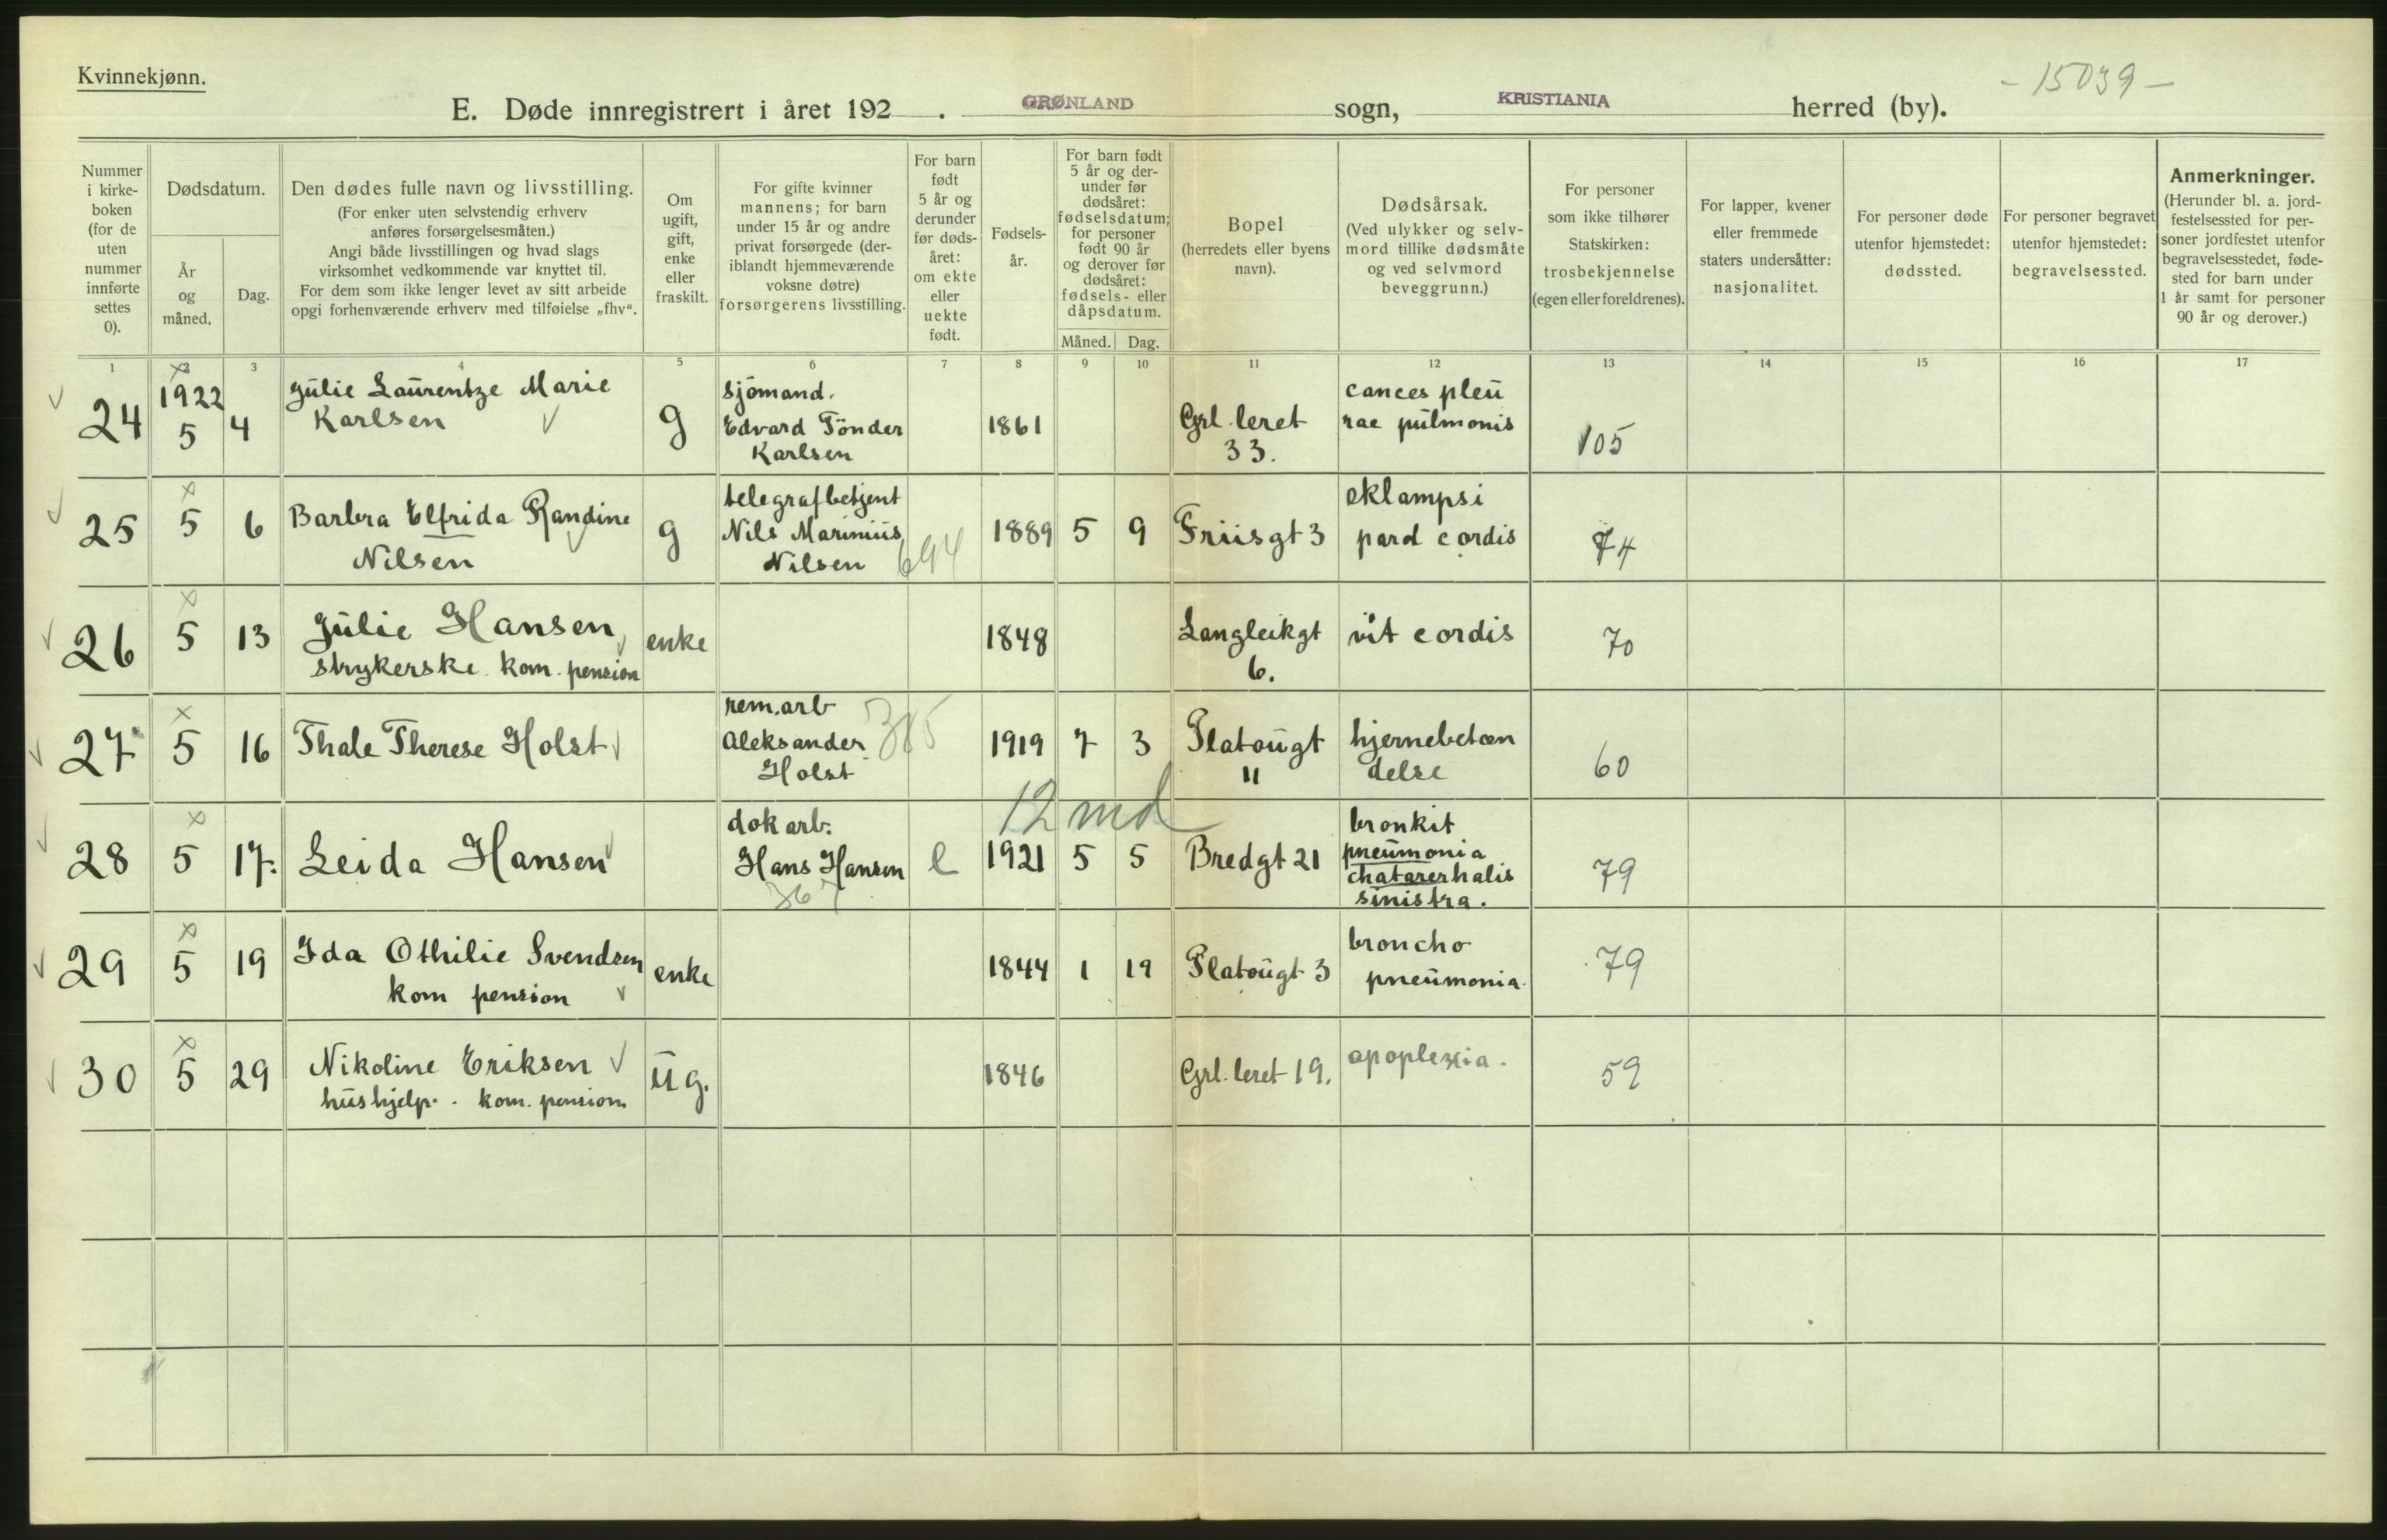 Kvinnekjønn.
- 15039 -
E. Døde innregistrert i året 192 . GRØNLAND sogn, KRISTIANIA herred (by).
Nummer i kirke- boken (for de uten nummer innførte settes 0).
Dødsdatum.
År og måned.
Dag.
Den dødes fulle navn og livsstilling.
(For enker uten selvstendig erhverv
anføres forsørgelsesmåten.)
Angi både livsstillingen og hvad slags
virksomhet vedkommende var knyttet til.
For dem som ikke lenger levet av sitt arbeide
opgi forhenværende erhverv med tilføielse „fhv“.
Om ugift, gift, enke eller fraskilt.
For gifte kvinner
mannens; for barn
under 15 år og andre
privat forsørgede (der-
iblandt hjemmeværende
voksne døtre)
forsørgerens livsstilling.
For barn
født
5 år og
derunder
før døds-
året:
om ekte
eller
uekte
født.
Fødsels-
år.
For barn født
5 år og der-
under før
dødsåret:
fødselsdatum;
for personer
født 90 år
og derover før
dødsåret:
fødsels- eller
dåpsdatum.
Måned. Dag.
Bopel
(herredets eller byens
navn).
Dødsårsak.
(Ved ulykker og selv-
mord tillike dødsmåte
og ved selvmord
beveggrunn.)
For personer
som ikke tilhører
Statskirken:
trosbekjennelse
(egen eller foreldrenes).
For lapper, kvener
eller fremmede
staters undersåtter:
nasjonalitet.
For personer døde
utenfor hjemstedet:
dødssted.
For personer begravet
utenfor hjemstedet:
begravelsessted.
Anmerkninger.
(Herunder bl. a. jord-
festelsessted for per-
soner jordfestet utenfor
begravelsesstedet, føde-
sted for barn under
1 år samt for personer
90 år og derover.)
1 2 3 4 5 6 7 8 9 10 11 12 13 14 15 16 17
24
1922
5
4
Julie Laurentze Marie
Karlsen
g
sjömand.
Edvard Tönder
Karlsen
1861
Grl. leret
33.
cances pleu
rae pulmonis
105
25
5
6
Barbra Elfrida Randine
Nilsen
g
telegrafbetjent
Nils Marinius
Nilsen
694
1889
5
9
Friisgt 3
eklampsi
pard cordis
74
26
5
13
Julie Hansen
strykerske. kom. pension
enke
1848
Langleikgt
6.
vit cordis
70
27
5
16
Thale Therese Holst
rem.arb
Aleksander
Holst
315
1919
7
3
Platougt
11
hjernebetæn
delse
60
12 md
28
5
17.
Leida Hansen
dokarb.
Hans Hansen
367
e
1921
5
5
Bredgt 21
bronkit
pneumonia
chatarerhalis
sinistra.
79
29
5
19
Ida Othilie Svendsen
kom pension
enke
1844
1
19
Platougt 3
broncho
pneumonia.
79
30
5
29
Nikoline Eriksen
hushjelp. kom. pension
ug.
1846
Grl. leret 19.
apoplexia.
59